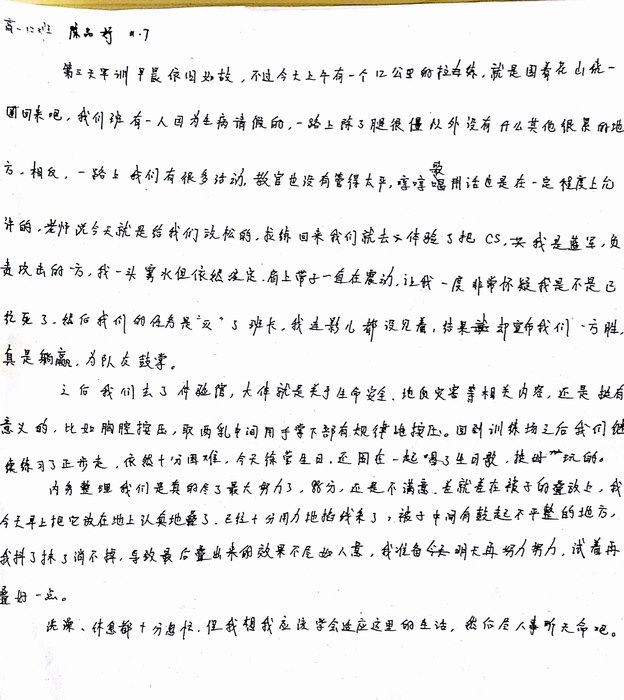 高一12班 陈品妤 11.7
第三天军训早晨依旧如故，不过今天上午有一个12公里的拉练，就是围着花山绕一
圈回来吧，我们班有一人因为生病请假的，一路上除了腿很僵以外没有什么其他很累的地
方。相反，一路上我们有很多活动，教官也没有管得太严，哼哼歌唱讲话也是在一定程度上允
许的，老师说今天就是给我们放松的，拉练回来我们就去又体验了把CS，我是蓝军，负
责攻击的一方，我一头雾水但依然坚定，肩上带子一直在震动，让我一度非常怀疑我是不是已
经死了，然后我们的任务是“灭”了班长，我连影儿都没见着，结果却宣布我们一方胜，
真是躺赢，为队友鼓掌。
之后我们去了体验馆，大体就是关于生命安全、地质灾害等相关内容，还是挺有
意义的，比如胸腔按压，取两乳中间用手掌下部有规律地按压。回到训练场之后我们继
续练习了正步走，依然十分困难，今天徐莹生日，还围在一起唱了生日歌，挺好玩的。
内务整理我们是真的尽了最大努力了，8分，还是不满意，差就差在被子的叠放上，我
今天早上把它放在地上认真地叠了，已经十分用力地掐线来了，被子中间有鼓起不平整的地方，
我抖了抖了消不掉，导致最后叠出来的效果不尽如人意，我准备明天再努力努力，试着再
叠好一点。
洗澡、休息都十分匆忙，但我想我应该学会适应这里的生活，然后尽人事听天命吧。